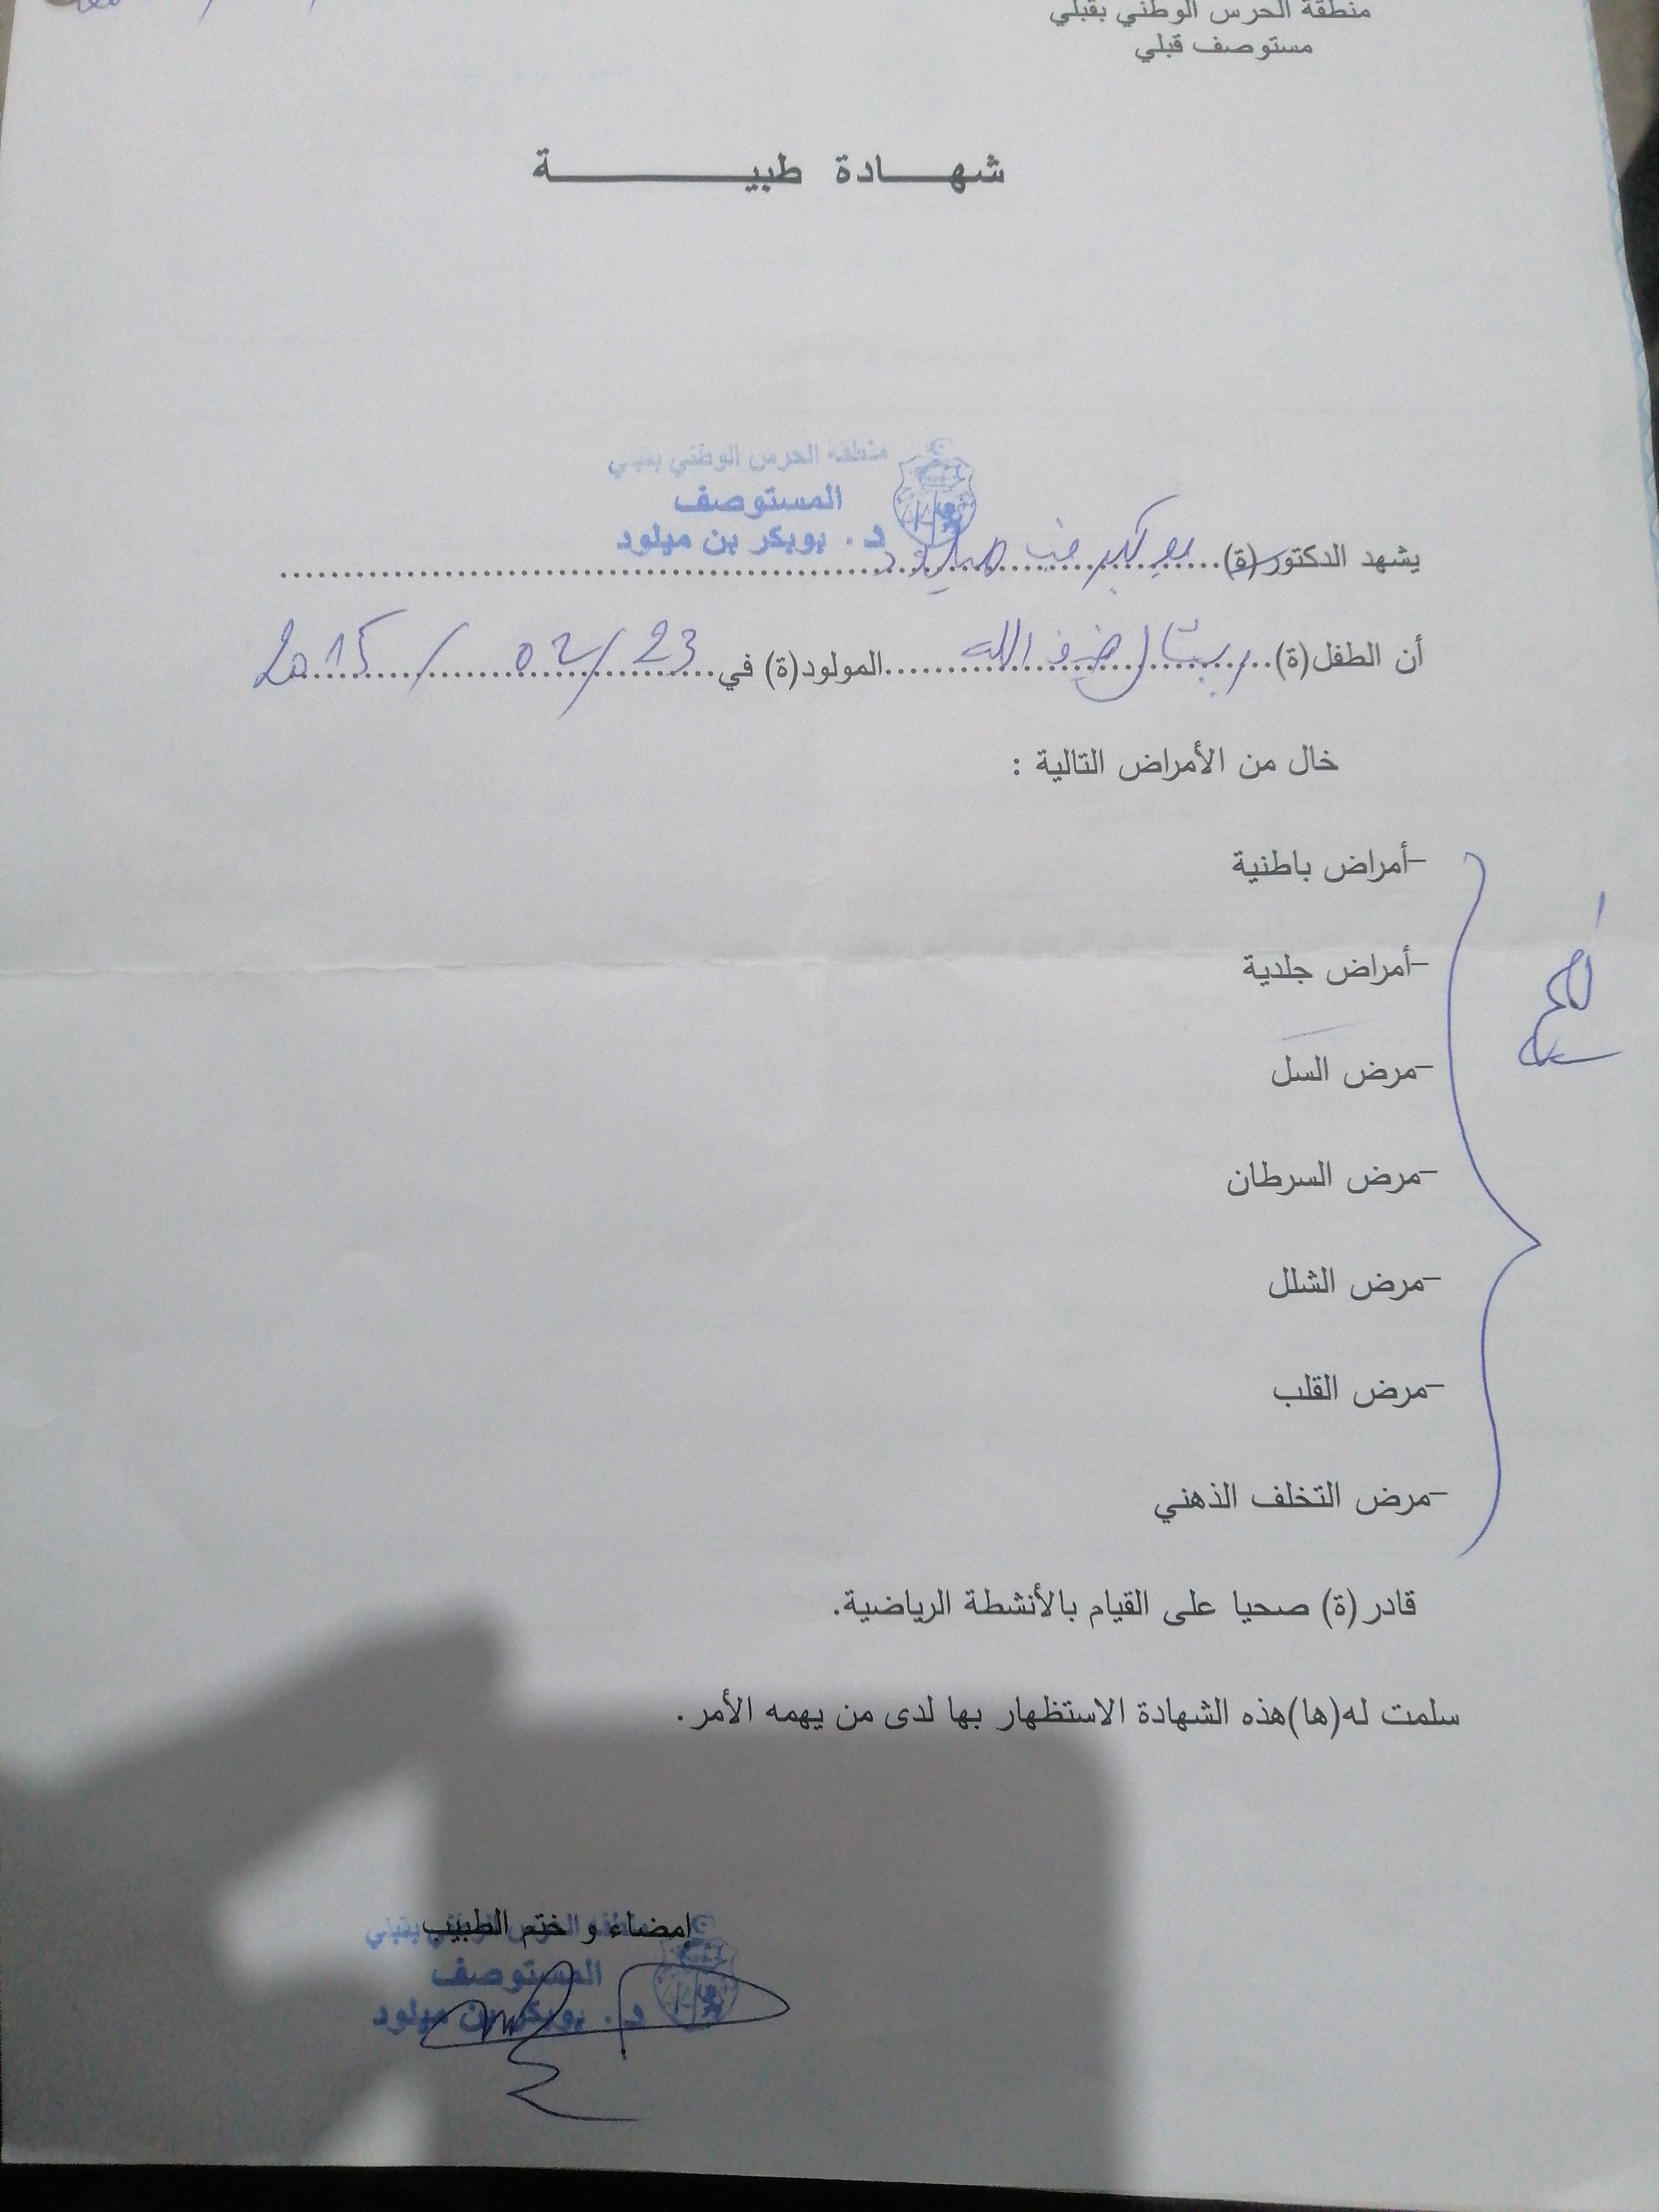 منطقة الحرس الوطني بقبلي
مستوصف قبلي
شهادة طبية
منطقة الحرس الوطني بقبلي
المستوصف
د. بوبكر بن ميلود
يشهد الدكتور(ة)... بوبكر بن ميلود ...
أن الطفل(ة)... ضيف الله ...المولود(ة) في... 23 / 02 / 2015
خال من الأمراض التالية :
-أمراض باطنية
-أمراض جلدية
-مرض السل
-مرض السرطان
-مرض الشلل
-مرض القلب
-مرض التخلف الذهني
قادر(ة) صحيا على القيام بالأنشطة الرياضية.
سلمت له(ها)هذه الشهادة الاستظهار بها لدى من يهمه الأمر.
إمضاء و ختم الطبيب
منطقة الحرس الوطني بقبلي
المستوصف
د. بوبكر بن ميلود